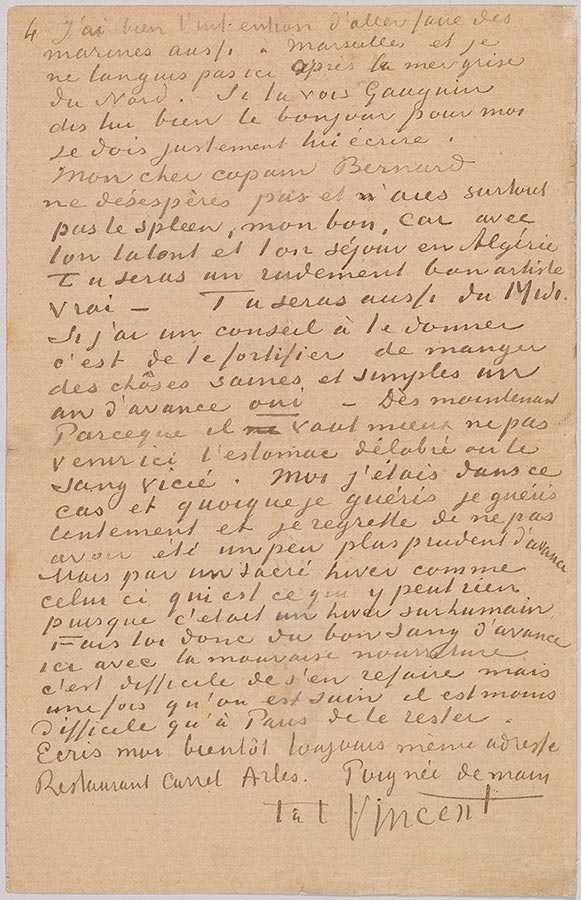 4 J'ai bien l'intention d'aller faire des
marines aussi à Marseilles et je
ne languis pas ici après la mer grise
du Nord. Si tu vois Gauguin
dis lui bien le bonjour pour moi
je dois justement lui écrire.
Mon cher copain Bernard
ne désespères pas et n'aies surtout
pas le spleen, mon bon, car avec
ton talent et ton séjour en Algérie
Tu seras un rudement bon artiste
vrai — Tu seras aussi du Midi.
Si j'ai un conseil à te donner
c'est de te fortifier de manger
des chôses saines et simples un
an d'avance oui — Dès maintenant
Parceque il vaut mieux ne pas
venir ici l'estomac délabré ou le
sang vicié. Moi j'étais dans ce
cas et quoique je guéris je guéris
lentement et je regrette de ne pas
avoir été un peu plus prudent d'avance
Mais par un sacré hiver comme
celui ci qui est ce qui y peut rien
puisque c'était un hiver surhumain
Fais toi donc du bon sang d'avance
ici avec la mauvaise nourriture
c'est difficile de s'en refaire mais
une fois qu'on est sain il est moins
difficile qu'à Paris de le rester.
Ecris moi bientôt toujours même adresse
Restaurant Carrel Arles. Poignée de main
t à t Vincent